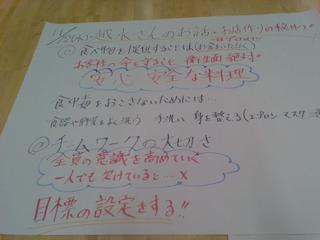 11/25(水) 越水さんのお話・お店作りの秘けつ
① 食べ物を提供することは(お金をいただく)
お客様の命を守ること 衛生面
安心 安全な料理
食中毒をおこさないためには…
食器や野菜をよく洗う 手洗い 身を整える(エプロン マスク 三
② チームワークの大切さ
全員の意識を高めていく
一人でも欠けていると…×
目標の設定をする!!